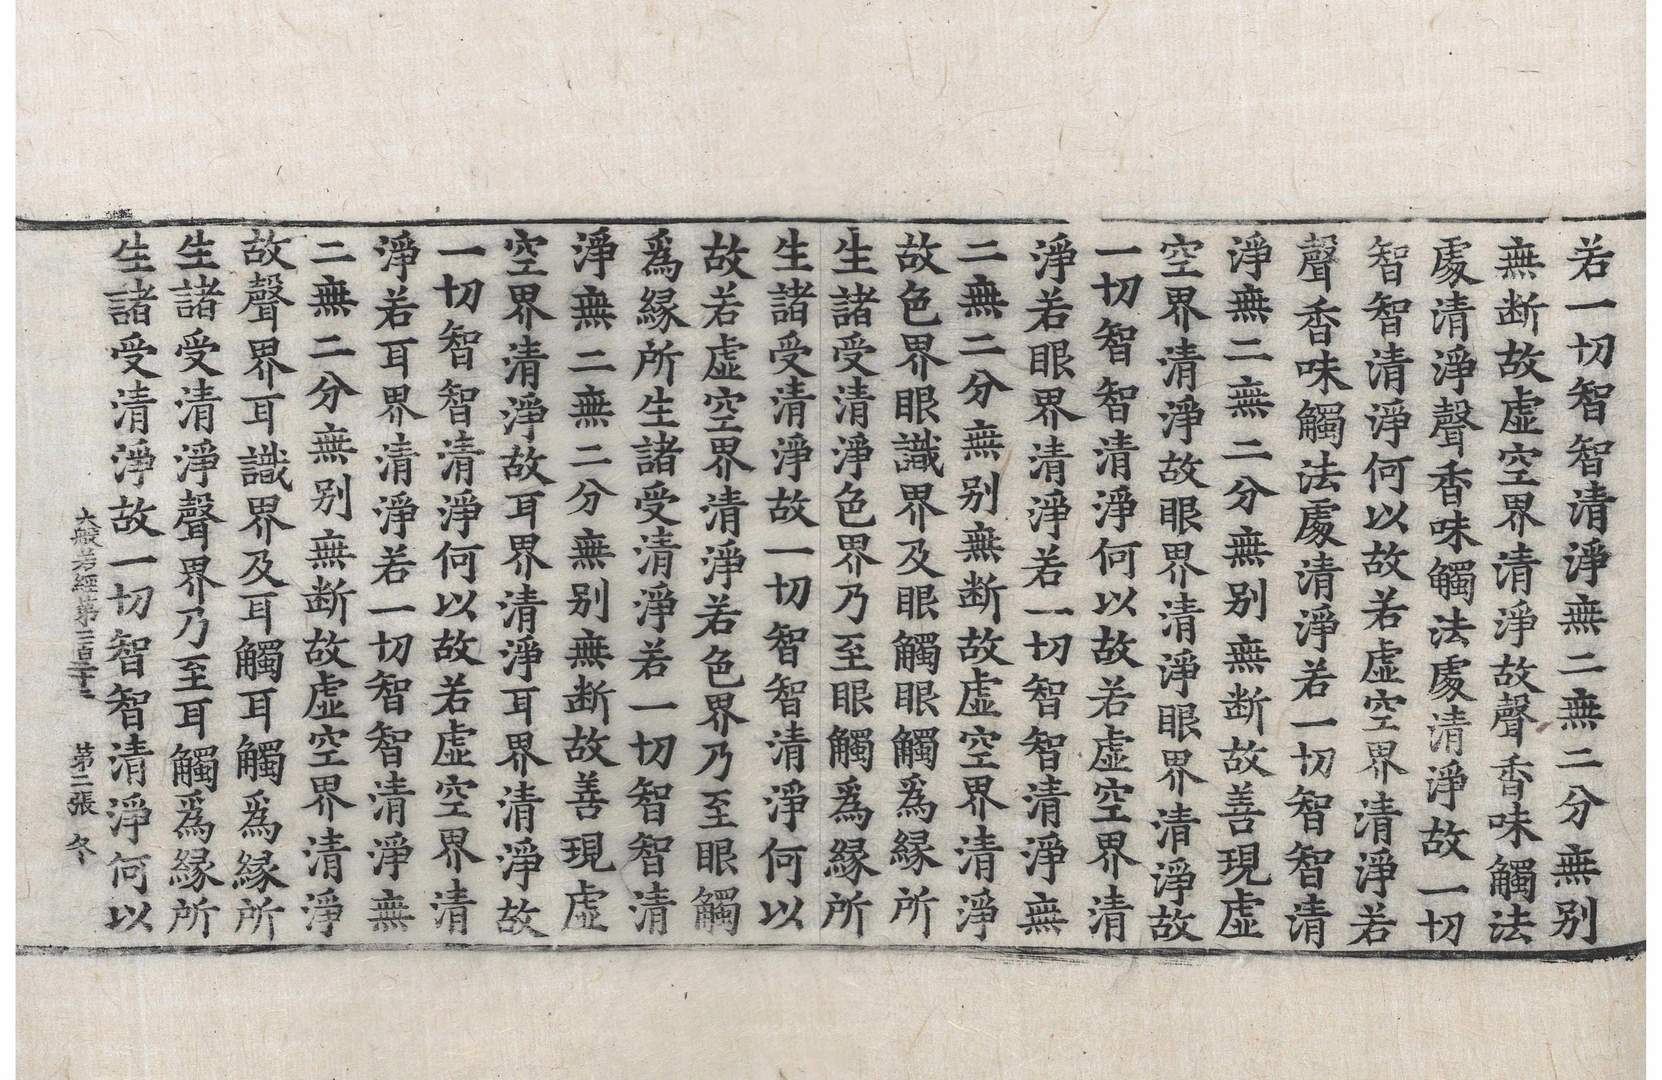 若一切智智清淨無二無二分無别
無断故虛空界清淨故聲香味觸法
處清淨聲香味觸法處清淨故一切
智智清淨何以故若虛空界清淨若
聲香味觸法處清淨若一切智智清
淨無二無二分無别無断故善現虛
空界清淨故眼界清淨眼界清淨故
一切智智清淨何以故若虛空界清
淨若眼界清淨若一切智智清淨無
二無二分無别無断故虛空界清淨
故色界眼識界及眼觸眼觸爲緣所
生諸受清淨色界乃至眼觸爲緣所
生諸受清淨故一切智智清淨何以
故若虛空界清淨若色界乃至眼觸
爲緣所生諸受清淨若一切智智清
淨無二無二分無别無断故善現虛
空界清淨故耳界清淨耳界清淨故
一切智智清淨何以故若虛空界清
淨若耳界清淨若一切智智清淨無
二無二分無别無断故虛空界清淨
故聲界耳識界及耳觸耳觸爲緣所
生諸受清淨聲界乃至耳觸爲緣所
生諸受清淨故一切智智清淨何以
大般若經第二百二十三 第二張 冬